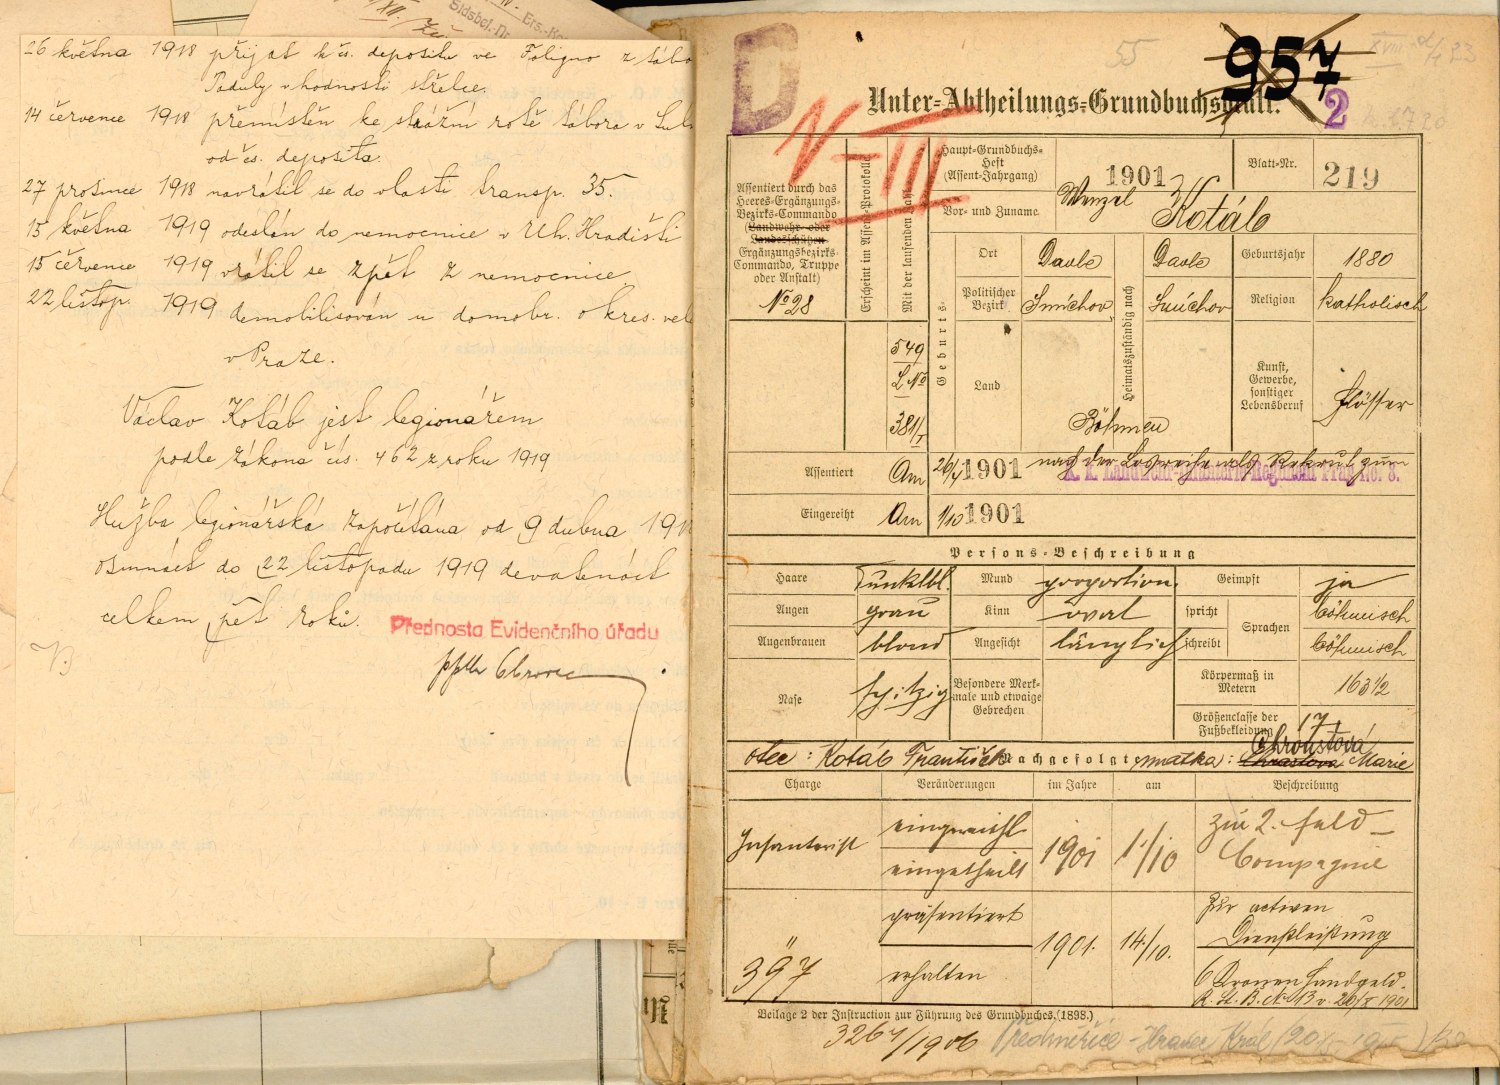 Sidsbef.-Nr.
Ers.-Ko
26 května 1918 přijat k čs. depositu ve Foligno z tábo
Paduly v hodnosti střelce.
14 července 1918 přemístěn ke strážní rotě tábora v
od čs. deposita.
27 prosince 1918 navrátil se do vlasti transp. 35.
15 května 1919 odeslán do nemocnice v Uh. Hradišti
15 července 1919 vrátil se zpět z nemocnice
22 listop. 1919 demobilisován u domobr. okres. vel
v Praze.
Václav Kotáb jest legionářem
podle zákona čís. 462 z roku 1919
Služba legionářská započítána od 9 dubna 191
osmnáct do 22 listopadu 1919 devatenáct
celkem pět roků.
Přednosta Evidenčního úřadu
D
55
957
2
Unter-Abtheilungs-Grundbuchsblatt.
N-III
Assentiert durch das
Heeres-Ergänzungs-
Bezirks-Commando
(Landwehr- oder
Landesschützen-
Ergänzungsbezirks-
Commando, Truppe
oder Anstalt)
No 28
Erscheint im Assent-Protokolle
Mit der laufenden Zahl
549
L No
381/I
Haupt-Grundbuchs-
Heft
(Assent-Jahrgang)
1901
Blatt-Nr.
219
Vor- und Zuname
Wenzel Kotáb
Geburts-
Ort
Davle
Heimatszuständig nach
Davle
Geburtsjahr
1880
Politischer
Bezirk
Smíchov
Smíchov
Religion
katholisch
Land
Böhmen
Kunst,
Gewerbe,
sonstiger
Lebensberuf
Flösser
Assentiert
Am
26/4 1901
nach der Losreihe als Rekrut zum
k. k. Landwehr-Infanterie-Regiment Prag No. 8.
Eingereiht
Am
1/10 1901
Persons-Beschreibung
Haare
dunklbl.
Mund
proportion.
Geimpft
ja
Augen
grau
Kinn
oval
spricht
Sprachen
böhmisch
Augenbrauen
blond
Angesicht
länglich
schreibt
böhmisch
Nase
spitzig
Besondere Merk-
male und etwaige
Gebrechen
Körpermaß in
Metern
163 1/2
Größenclasse der
Fußbekleidung
17
Chroustová
otec: Kotáb František
Nachgefolgt
matka: Chrastova Marie
Charge
Veränderungen
im Jahre
am
Beschreibung
Infanterist
eingereiht
eingetheilt
1901
1/10
zur 2. Feld-
Compagnie
"
präsentiert
1901.
14/10.
Zur activen
Dienstleistung
397
erhalten
6 Kronen Handgeld.
Beilage 2 der Instruction zur Führung des Grundbuches. (1898.)
3267/1906
Předměřice - Hradec Král